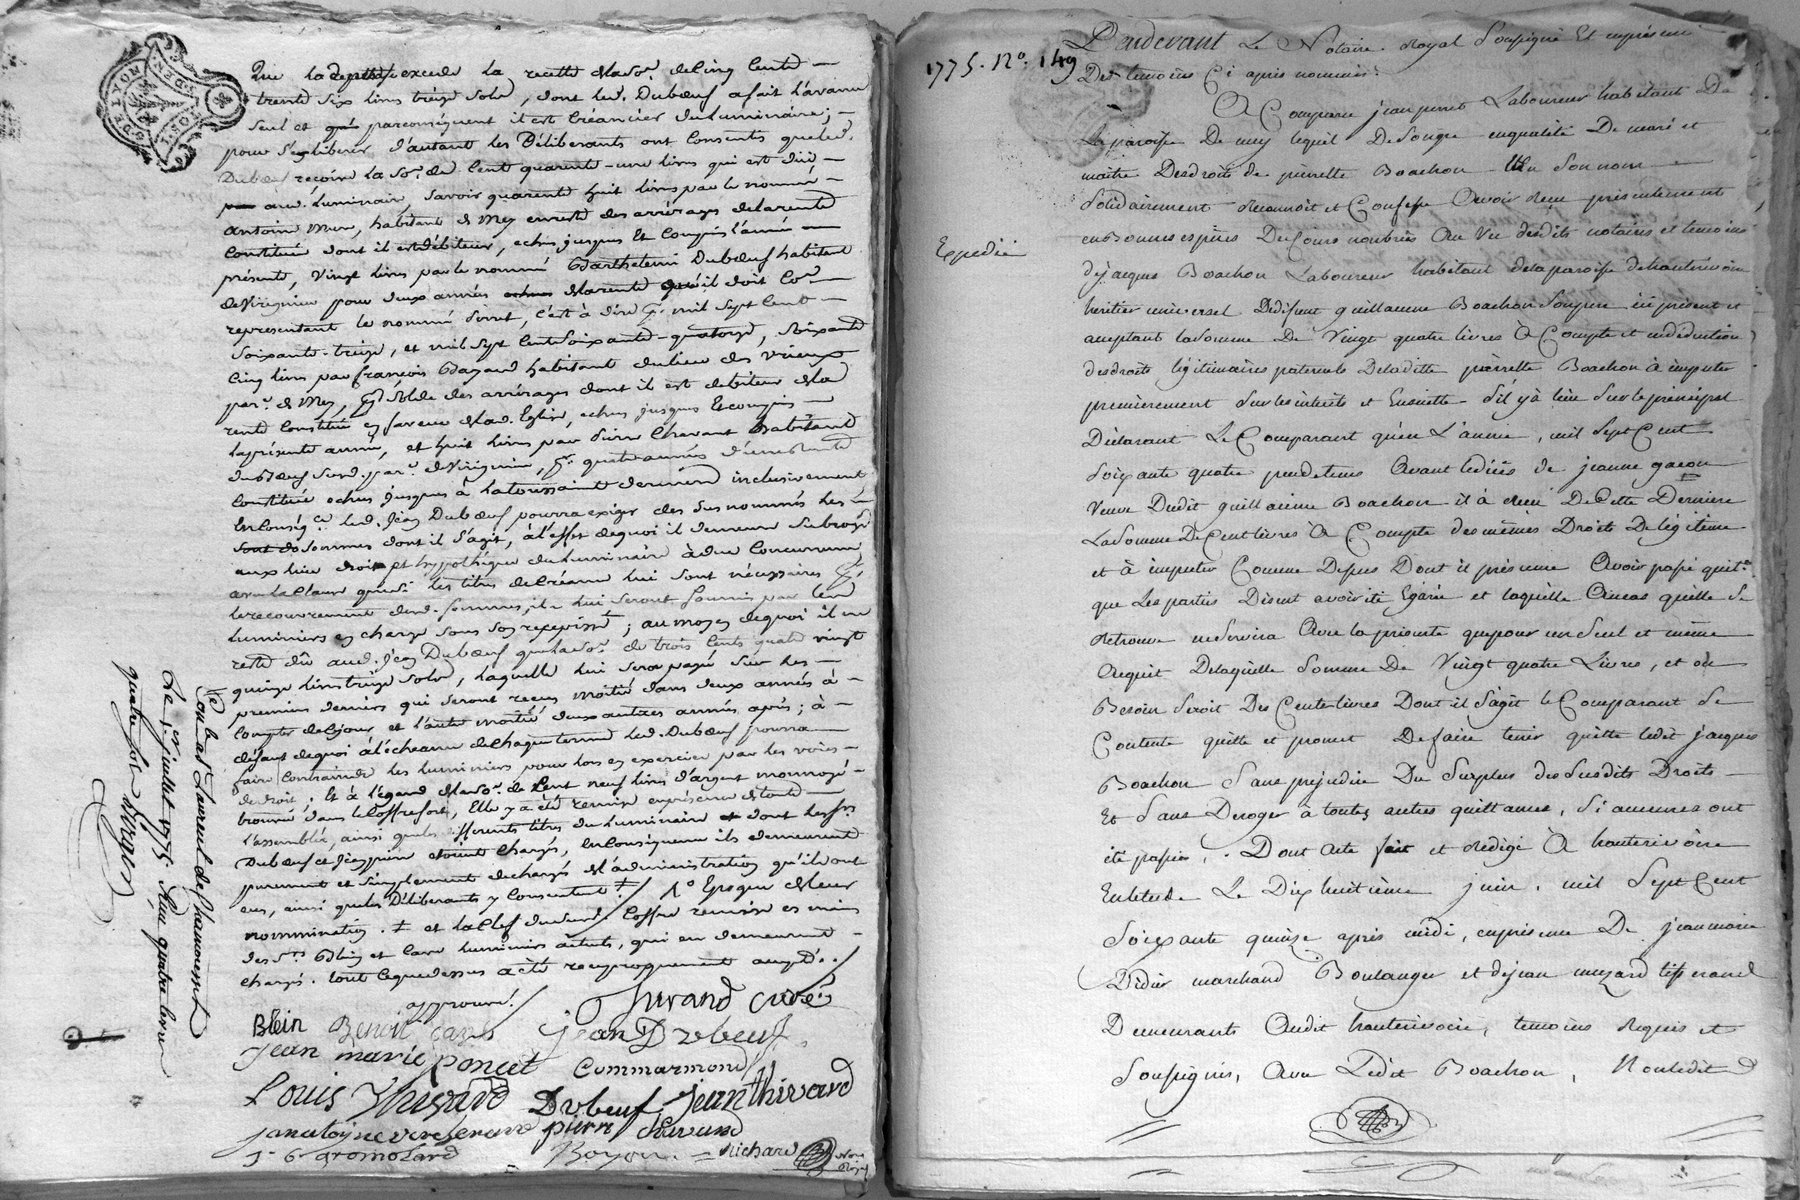 Que la depense excede la recette de lad. So. de Cinq Cents
trente six livres treize sols, dont led. Dubœuf a fait l'avance
seul et par conséquent il est Créancier du Luminaire;
pour s'en liberer d'autant les Déliberants ont Consenti que led.
Dubœuf reçoive la So. de Cent quarente-une livres qui est düe
aud. Luminaire, Savoir quarente huit livres par le nommé
antoine, habitant de Mey en reste des arrérages de la rente
Constituée dont il est débiteur, echus jusques Et Compris l'année
présente, Vingt livres par le nommé Barthelemi Dubœuf habitant
de Virignieu pour deux années de la rente qu'il doit Co.
représentant le nommé, c'est à dire pr. mil sept Cent
soixante-treize, et mil sept Cent Soixante-quatorze, Soixante
Cinq livres par françois Bazand habitant du lieu des
par. de Mey, pr. Solde des arrérages dont il est debiteur de la
rente Constituée en faveur de lad. Eglise, echus jusques Et compris
la présente année, et huit livres par Pierre Chavant habitant
du Bœuf Susd. par. de Virignieu, pr. quatre années d'une rente
Constituée echus jusques à la toussaint derniere inclusivement
En Conség.ce led. Jean Dubœuf pourra exiger des sus nommés les
Sommes dont il s'agit, à l'effet de quoi il demeure Subrogé
aux lieu droit et hypothèque du Luminaire à due Concurrence
avec la Clause que si les titres de Créance lui sont nécessaires pr.
le recouvrement desd. Sommes, ils lui seront fournis par les
Luminiers en charge sous son recepissé; au moyen de quoi il ne
reste dû aud. Jean Dubœuf que la So. de trois Cents quatre vingt
quinze livres treize sols, laquelle lui sera payée sur les
premiers deniers qui seront reçus moitié dans deux années à
Compter de Ce jour et l'autre moitié deux autres années après; à
défaut de quoi à l'échéance de Chaque terme led. Dubœuf pourra
faire Contraindre les Luminiers pour lors en exercice par les voies
de droit; Et à l'égard de la So. de Cent neuf livres d'argent monnoyé
trouvée dans le Coffre fort, Elle y a été remise en présence de toute
l'assemblée, ainsi que les différents titres du Luminaire dont les Srs.
Dubœuf et étoient Chargés, En Conséquence ils demeurent
purement et simplement déchargés de l'administration qu'ils ont
eue, ainsi que les Déliberants y Consentent ‡ / Epoque de leur
nommination. ‡ et la Clef dudit Coffre remise es mains
des Srs. Blein et Carre Luminiers actuels, qui en demeurent
Chargés. tout Ce que dessus a été reciproquement accepté. /
approuvé /
Durand Curé
Blein Benoit Carre Jean Dubeuf
Jean marie Poncet Commarmond
Louis Thivard Dubeuf Jean Thivard
jan antoyne pierre Chavand
J. B. gromolard Boyer Richard Nore. Royal
Con.lé à St Laurent de Chamousset
Le 1er juillet 1775. Reçu quatre livres
quatre sols
1775. No. 149
Expedié
Pardevant Le Notaire Royal Soussigné Et en présence
Des temoins Ci après nommés.
A Comparu jean perret Laboureur habitant De
la paroisse De mey lequel De Songre en qualité De mari et
maitre Des droits de pierrette Boachon En Son nom
Solidairement reconnoit et Confesse Avoir Reçu présentement
en Bonnes espèces Du Cours nombrées Au Vu desdits notaires et temoins
de jacques Boachon Laboureur habitant de la paroisse de hauterivoire
heritier universel De défunt guillaume Boachon Son pere ici présent et
acceptant la Somme De Vingt quatre livres à Compte et en déduction
des droits légitimaires paternels De laditte pierrette Boachon à imputer
premièrement Sur les interêts et Ensuitte S'il y à lieu Sur le principal
Déclarant Le Comparant qu'en L'année, mil Sept Cent
Soixante quatre peu de tems Avant le décès de jeanne gacon
Veuve Dudit guillaume Boachon il à Reçu De Cette Derniere
La Somme De Cent livres À Compte des mêmes Droits De légitime
et à imputer Comme Depuis Dont il présume Avoir passé quit.ce
que Les parties Disent avoir été Egarée et laquelle Au cas qu'elle Se
Retrouve ne Servira Avec la présente que pour un Seul et même
Acquit De laquelle Somme De Vingt quatre Livres, et au
Besoin Seroit Des Cent livres Dont il S'agit le Comparant Se
Contente quitte et promet De faire tenir quitte ledit jacques
Boachon Sans prejudice Du Surplus des Susdits Droits
Et Sans Deroger à toutes autres quittances, Si aucunes ont
été passées. Dont Acte fait et Rédigé À hauterivoire
En l'etude Le Dix huitième juin, mil Sept Cent
Soixante quinze après midi, en présence De jean marie
Didier marchand Boulanger et de jean muzard tisserand
Demeurants Audit hauterivoire, temoins Requis et
Soussignés, Avec Ledit Boachon, Non ledit